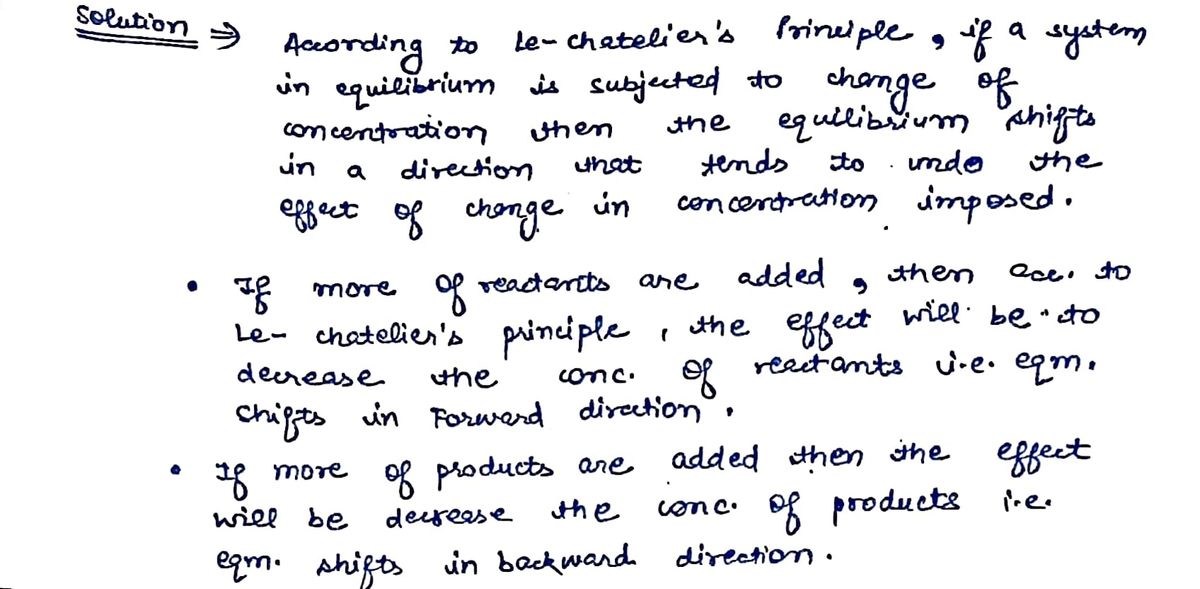 Solution ⇒ According to Le-chatelier's Principle, if a system
in equilibrium is subjected to change of
concentration then the equilibrium shifts
in a direction that tends to undo the
effect of change in concentration imposed.
• If more of reactants are added, then acc. to
Le-chatelier's principle, the effect will be to
decrease the conc. of reactants i.e. eqm.
shifts in Forward direction.
• If more of products are added then the effect
will be decrease the conc. of products i.e.
eqm. shifts in backward direction.